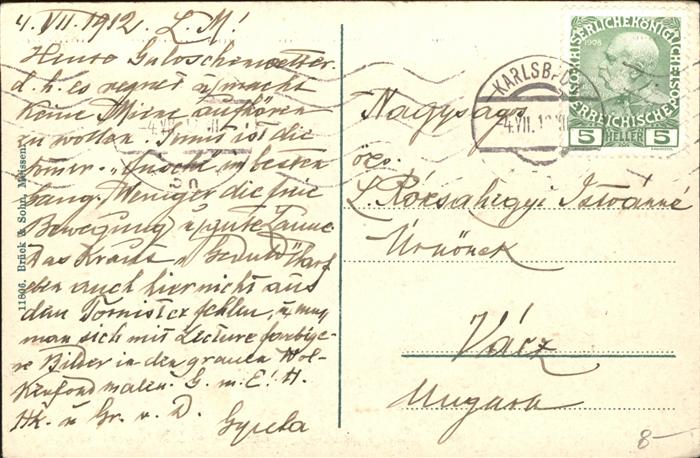 4. VII. 1912. L. M!
Heute Galoschenwetter.
d. h. es regnet u. macht
keine Miene aufhören
zu wollen. Sonst ist die
im besten
Gang. Weniger die freie
Bewegung u. gute Laune.
Das Kraut u. Geduld darf
eben auch hier nicht aus
dem Tornister fehlen, u. muss
man sich mit Lecture farbige-
re Bilder in den grauen Wol-
kenfond malen. G. m. E! H.
Hk. u. Gr. v. D.
Gyula
11806. Brück & Sohn, Meissen.
KAISERLICHE KÖNIGLICHE
ÖSTERREICHISCHE POST
1908
5 HELLER 5
KARLSB
4. VII. 12
Nagyság
özv.
L. Rózsahegyi Istvánné
Úrnőnek
Vácz
Ungarn
8-